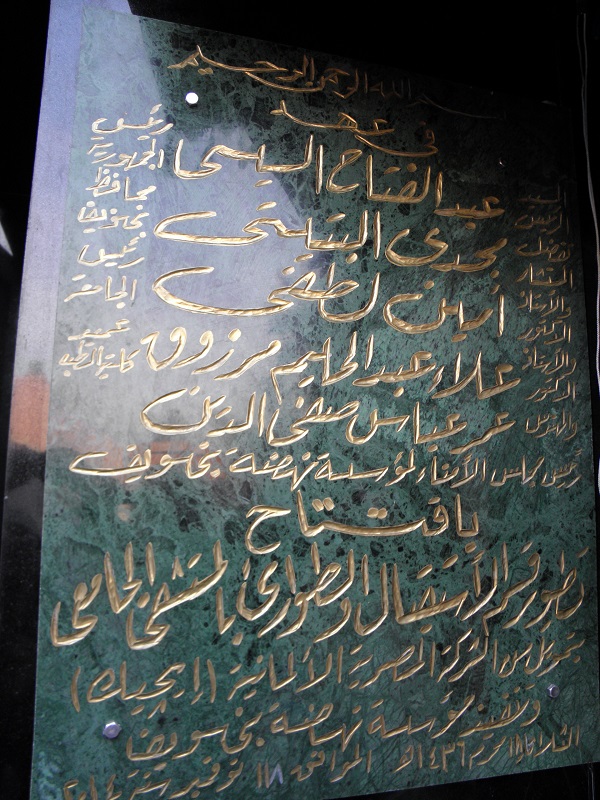 بسم الله الرحمن الرحيم
في عهد
السيد الرئيس عبد الفتاح السيسى رئيس الجمهورية
تفضل المستشار مجدى البتيتى محافظ بنى سويف
والأستاذ الدكتور أمين لطفى رئيس الجامعة
والأستاذ الدكتور علاء عبد الحليم مرزوق عميد كلية الطب
والمهندس عمر عباس صفى الدين
رئيس مجلس الأمناء لمؤسسة نهضة بنى سويف
بافتتاح
تطوير قسم الاستقبال والطوارئ بالمستشفى الجامعى
بتمويل من الشركة المصرية الألمانية (إيجيك)
وتنفيذ مؤسسة نهضة بنى سويف
الثلاثاء محرم ١٤٣٦هـ الموافق ١٨ نوفمبر سنة ٢٠١٤